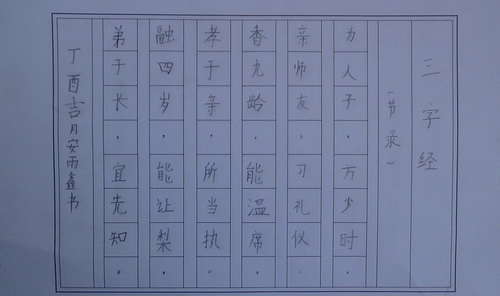 三字经
（节录）
为人子，方少时，
亲师友，习礼仪。
香九龄，能温席，
孝于亲，所当执。
融四岁，能让梨，
弟于长，宜先知。
丁酉吉月安雨鑫书